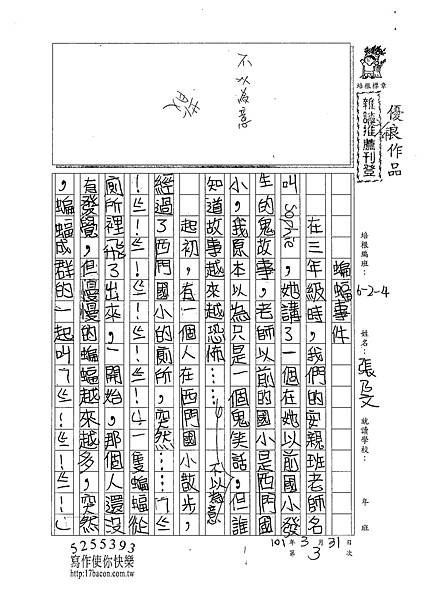 不以為意
培根標章
優良作品
雜誌推薦刊登
培根編班:6-2-4 姓名:張乃文 就讀學校: 年 班
蝙蝠事件
在三年級時,我們的安親班老師名
叫Sophie,她講了一個在她以前國小發
生的鬼故事,老師以前的國小是西門國
小,我原本以為只是一個鬼笑話,但誰
知道故事越來越恐怖……
不以為意
起初,有一個人在西門國小散步,
經過了西門國小的廁所,突然……
一隻蝙蝠從
廁所裡飛了出來,一開始,那個人還沒
有發覺,但慢慢的蝙蝠越來越多,突然
,蝙蝠成群的一起叫
101年3月31日
第3次
5255393
寫作使你快樂
http://17bacon.com.tw